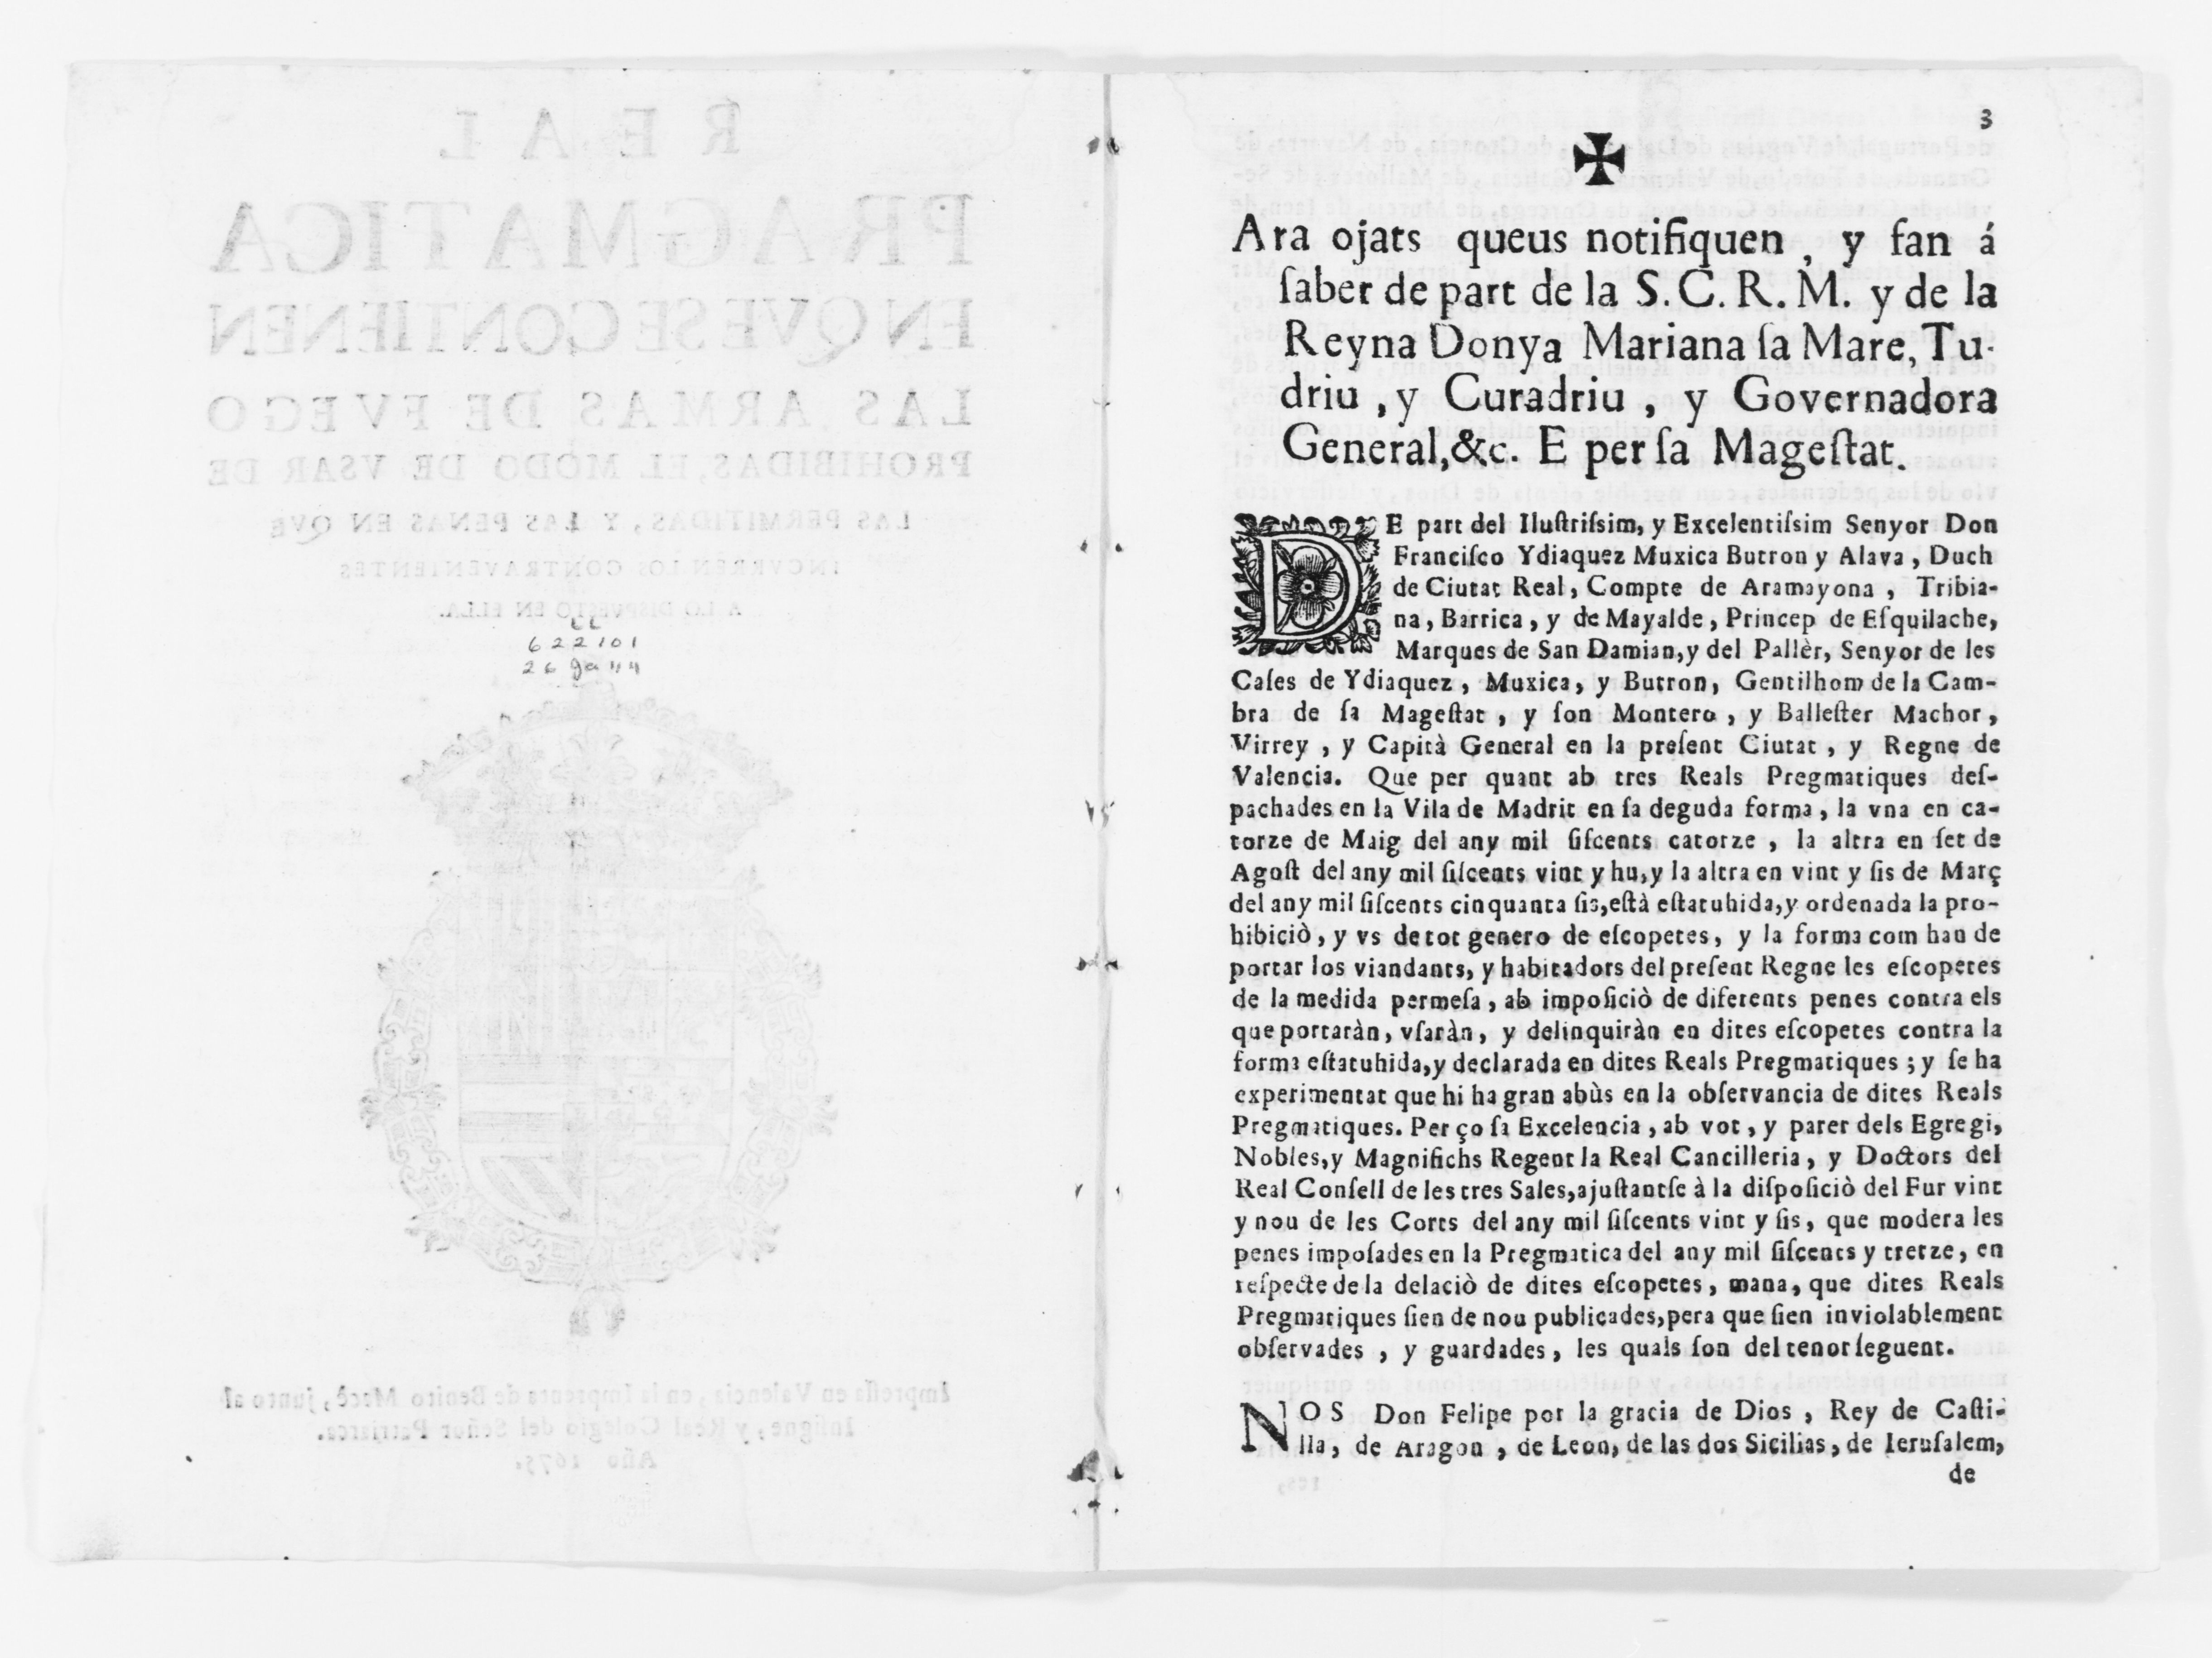 REAL
PRAGMATICA
EN QVE SE CONTIENEN
LAS ARMAS DE FVEGO
PROHIBIDAS, EL MODO DE VSAR DE
LAS PERMITIDAS, Y LAS PENAS EN QVE
INCVRREN LOS CONTRAVENIENTES
A LO DISPUESTO EN ELLA.
622101
26 Ja 44
Impressa en Valencia, en la Imprenta de Benito Macè, junto al
Insigne, y Real Colegio del Señor Patriarca.
Año 1675.
3
Ara ojats queus notifiquen, y fan á
ſaber de part de la S. C. R. M. y de la
Reyna Donya Mariana ſa Mare, Tu-
driu, y Curadriu, y Governadora
General, &c. E per ſa Mageſtat.
DE part del Iluſtriſsim, y Excelentiſsim Senyor Don
Franciſco Ydiaquez Muxica Butron y Alava, Duch
de Ciutat Real, Compte de Aramayona, Tribia-
na, Barrica, y de Mayalde, Princep de Eſquilache,
Marques de San Damian, y del Pallèr, Senyor de les
Caſes de Ydiaquez, Muxica, y Butron, Gentilhom de la Cam-
bra de ſa Mageſtat, y ſon Montero, y Balleſter Machor,
Virrey, y Capità General en la preſent Ciutat, y Regne de
Valencia. Que per quant ab tres Reals Pregmatiques deſ-
pachades en la Vila de Madrit en ſa deguda forma, la vna en ca-
torze de Maig del any mil ſiſcents catorze, la altra en ſet de
Agoſt del any mil ſiſcents vint y hu, y la altra en vint y ſis de Març
del any mil ſiſcents cinquanta ſis, eſtà eſtatuhida, y ordenada la pro-
hibiciò, y vs de tot genero de eſcopetes, y la forma com han de
portar los viandants, y habitadors del preſent Regne les eſcopetes
de la medida permeſa, ab impoſiciò de diferents penes contra els
que portaràn, vſaràn, y delinquiràn en dites eſcopetes contra la
forma eſtatuhida, y declarada en dites Reals Pregmatiques; y ſe ha
experimentat que hi ha gran abùs en la obſervancia de dites Reals
Pregmatiques. Per ço ſa Excelencia, ab vot, y parer dels Egregi,
Nobles, y Magnifichs Regent la Real Cancilleria, y Doctors del
Real Conſell de les tres Sales, ajuſtantſe à la diſpoſiciò del Fur vint
y nou de les Corts del any mil ſiſcents vint y ſis, que modera les
penes impoſades en la Pregmatica del any mil ſiſcents y tretze, en
reſpecte de la delaciò de dites eſcopetes, mana, que dites Reals
Pregmatiques ſien de nou publicades, pera que ſien inviolablement
obſervades, y guardades, les quals ſon del tenor ſeguent.
NOS Don Felipe por la gracia de Dios, Rey de Caſti-
lla, de Aragon, de Leon, de las dos Sicilias, de Ieruſalem,
de